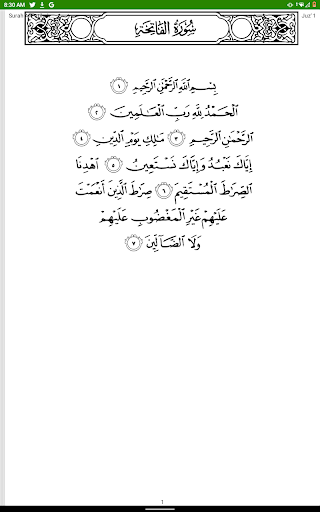 8:30 AM
Surah
Juz' 1
سُورَةُ الفَاتِحَةِ
بِسْمِ ٱللَّهِ ٱلرَّحْمَٰنِ ٱلرَّحِيمِ ١
ٱلْحَمْدُ لِلَّهِ رَبِّ ٱلْعَٰلَمِينَ ٢
ٱلرَّحْمَٰنِ ٱلرَّحِيمِ ٣ مَٰلِكِ يَوْمِ ٱلدِّينِ ٤
إِيَّاكَ نَعْبُدُ وَإِيَّاكَ نَسْتَعِينُ ٥ ٱهْدِنَا
ٱلصِّرَٰطَ ٱلْمُسْتَقِيمَ ٦ صِرَٰطَ ٱلَّذِينَ أَنْعَمْتَ
عَلَيْهِمْ غَيْرِ ٱلْمَغْضُوبِ عَلَيْهِمْ
وَلَا ٱلضَّآلِّينَ ٧
1